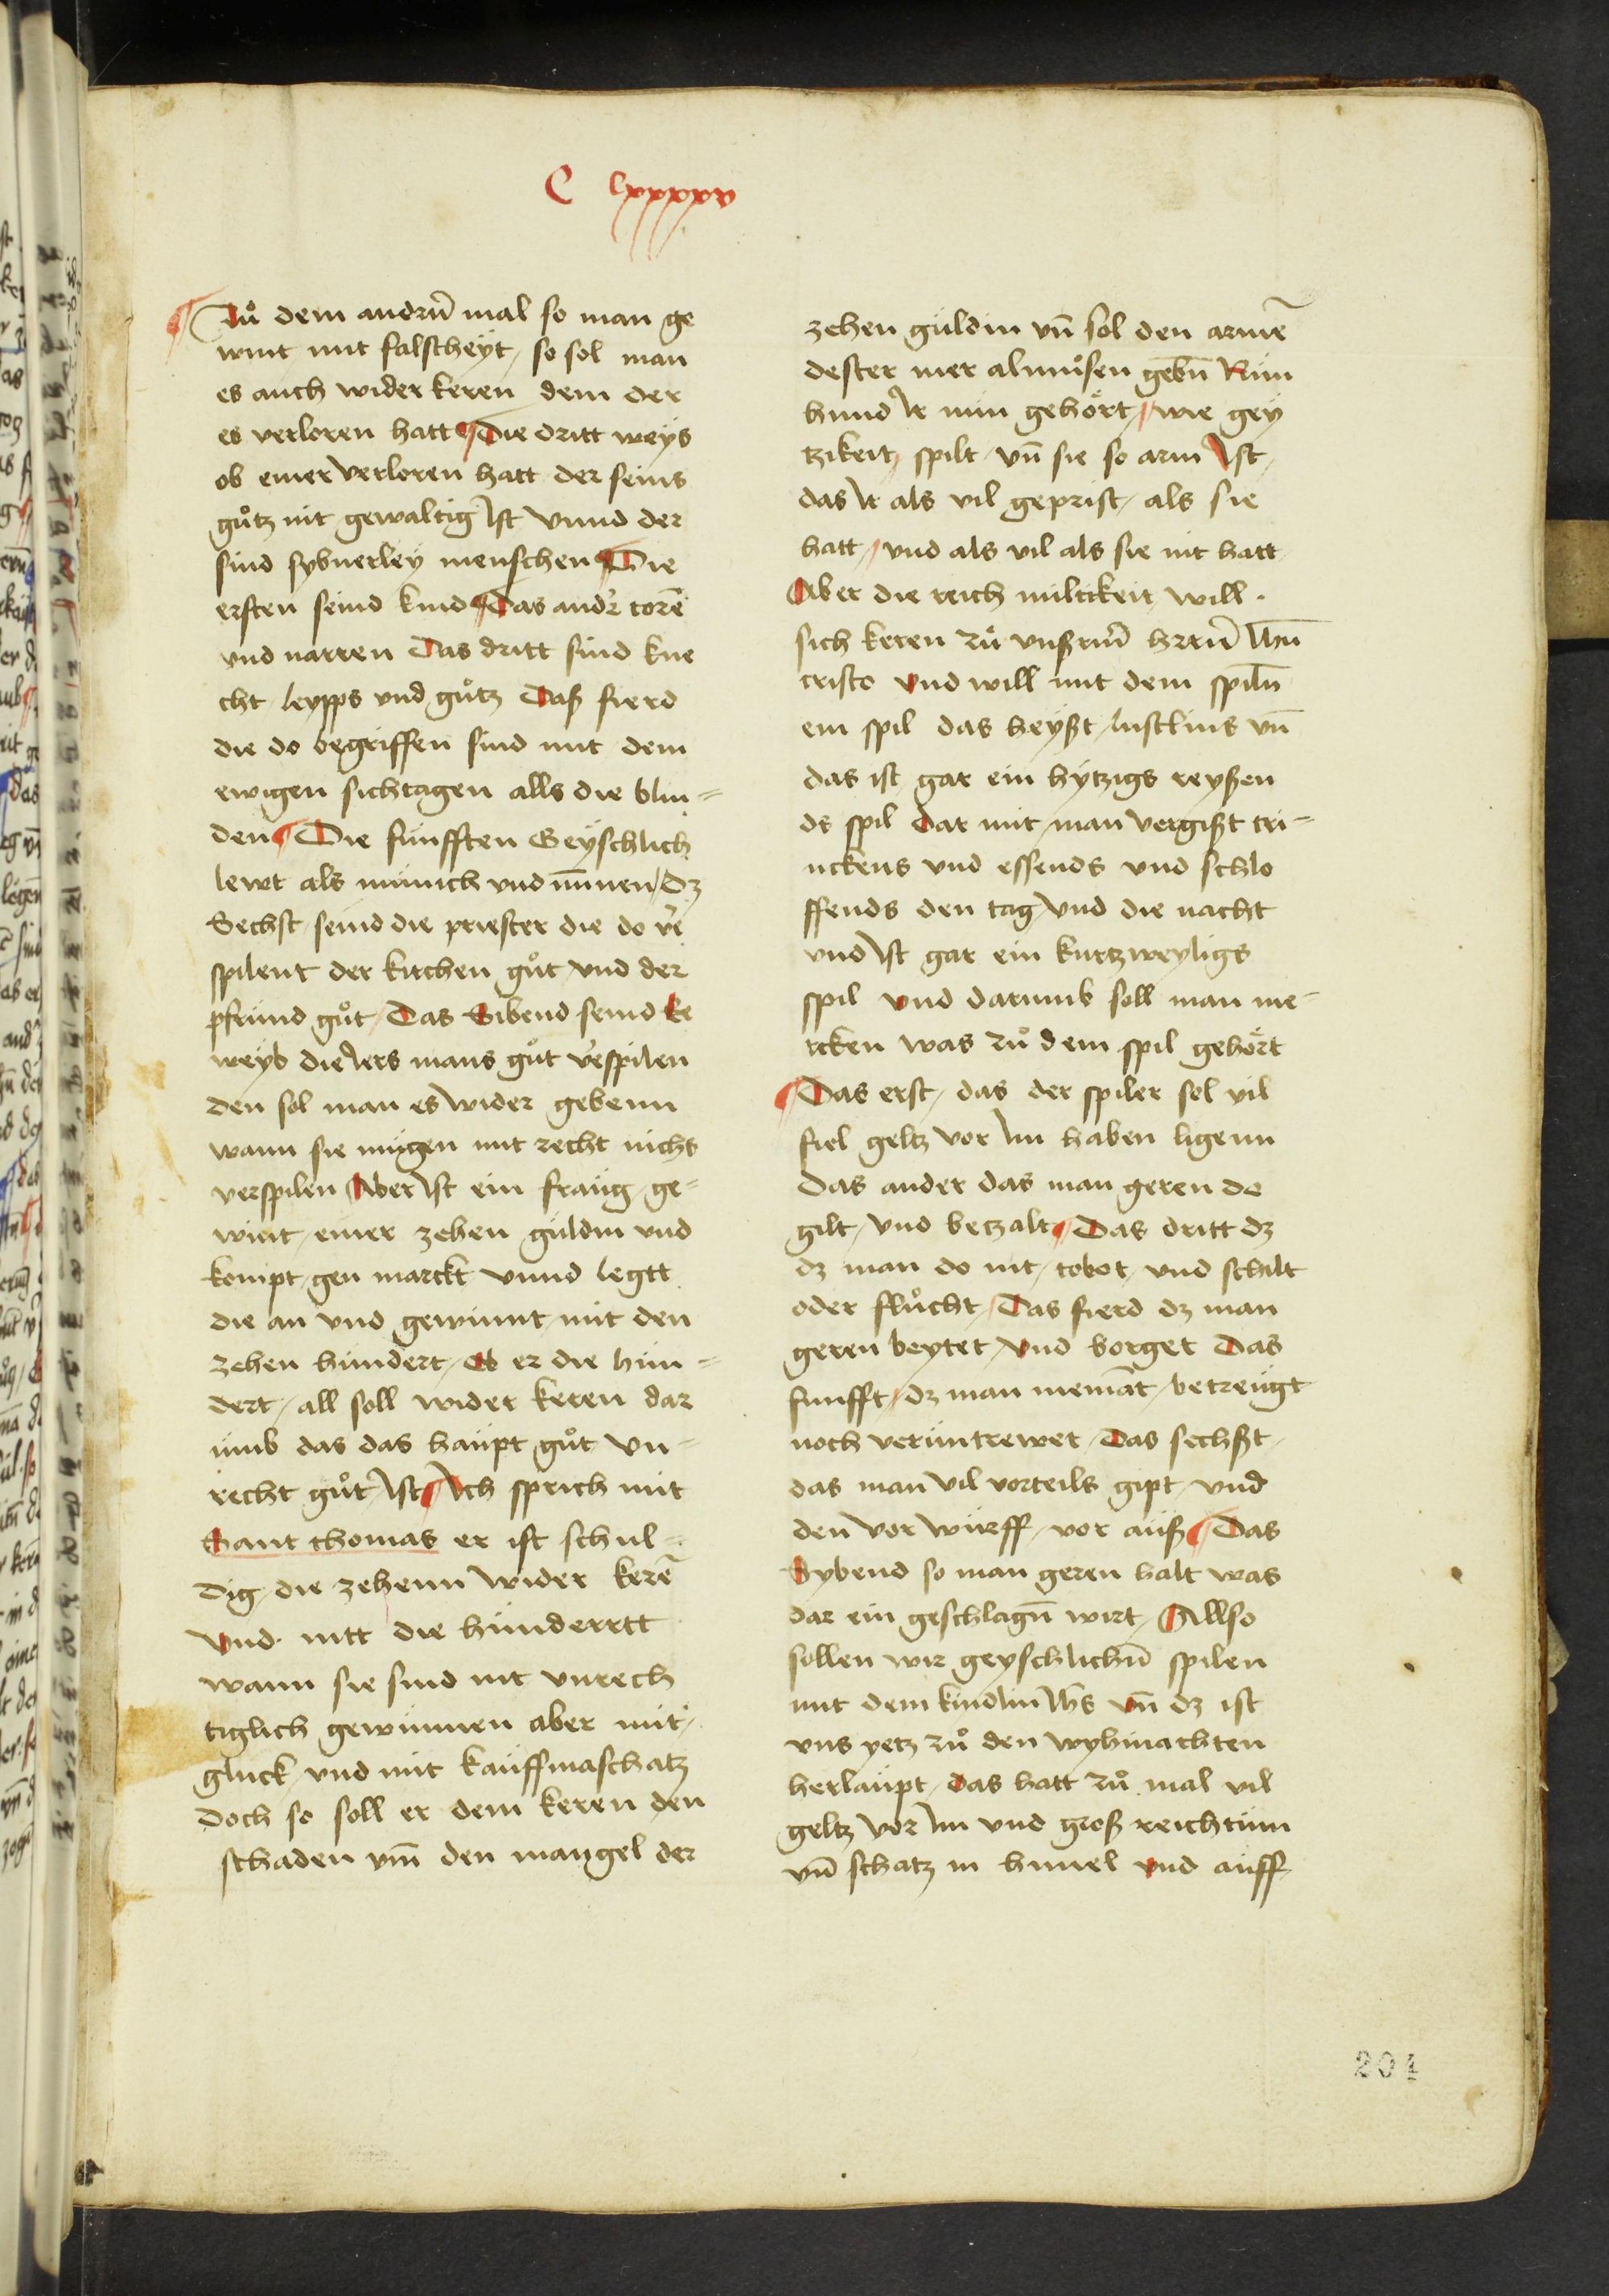 C lxxxxv
Zuͦ dem andrn̄ mal so man ge
wint mit falscheÿt / so sol man
es auch wider keren dem der
es verloren hatt ¶ Die dritt weÿs
ob einer verloren hatt der seins
guͦtz nit gewaltig Ist vnnd der
sind sÿbnerleÿ menschen ¶ Die
ersten seind kind ¶ Das andr̄ torē
vnd narren Das dritt sind kne
cht leypps vnd guͦtz Daß fierd
die do begriffen sind mit dem
ewigen sichtagen alls die blin=
den ¶ Die fünfften Geÿschlich
lewt als münich vnd nunnen / Dz
Sechst seind die priester die do v̄e
spilent der kirchen guͦt vnd der
pfründ guͦt / Das Sibend seind ke
weÿb die Iers mans guͦt v̄espilen
den sol man es wider gebenn
wann sie mügen mit recht nichs
verspilen Aber Ist ein fraüg ge=
wint / einer zehen güldin vnd
kompt gen marckt vnnd legtt
die an vnd gewinnt mit den
zehen hündert / Ob er die hün=
dert / all soll wider keren dar
ümb das das haüpt guͦt vn=
recht guͦt Ist ¶ Ich sprich mit
Sant thomas er ist schul=
dig die zehenn wider kerē
Vnd nitt die hünderrtt
wann sie sind nit vnrech
tiglich gewünnen aber mit
glück / vnd mit kaüffmaschatz
Doch so soll er dem keren den
schaden vm̄ den mangel der
zehen güldin vn̄ sol den armē
dester mer almuͦsen gebn̄ Küm
hund Ir nün gehoͤrt / wie geÿ
tzikeit / spilt / vn̄ sie so arm Ist /
das Ir als vil geprist / als sie
hatt / vnd als vil als sie nit hatt
Aber die reich miltikeit will
sich keren zuͦ vnßrm̄ hrrn̄ Ihū
cristo vnd will mit dem spiln̄
ein spil das heÿßt / lustlins vn̄
das ist gar ein hÿtzigs reÿßen
ds spil Dar mit man vergißt tri=
nckens vnd essends vnd schlo
ffends den tag vnd die nacht
vnd Ist gar ein kürtzweÿligs
spil vnd darumb soll man me=
rcken was zuͦ dem spil gehoͤrt
¶ Das erst / das der spiler sol vil
fiel geltz vor Im haben ligenn
Das ander das man geren do
gilt / vnd betzalt ¶ Das dritt dz
dz man do nit / tobot / vnd schilt
oder fluͦcht / Das fierd dz man
geren beÿtet / vnd borget Das
fünfft / dz man niemāt / betreügt
noch verüntrewet / Das sechßt /
das man vil vorteils gipt / vnd
den vor würff / vor aüß ¶ Das
Sÿbend so man geren halt was
dar ein geschlagn̄ wirt / Allso
sollen wir geÿschlichn̄ spilen
mit dem kindlin Ihs̄ vn̄ dz ist
vns yetz zuͦ den wÿhinachten
herlaüpt / das hatt zuͦ mal vil
geltz vor Im vnd groß reichtüm
vn̄ schatz in himel vnd aüff
204